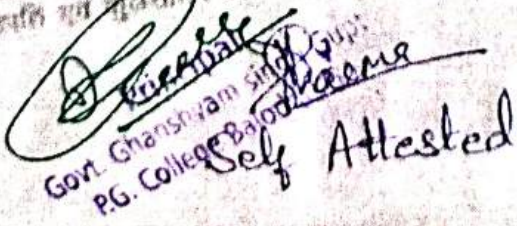 Principal
Govt. Ghanshyam Singh Gupt
P.G. College Balod
Sharma
Self Attested